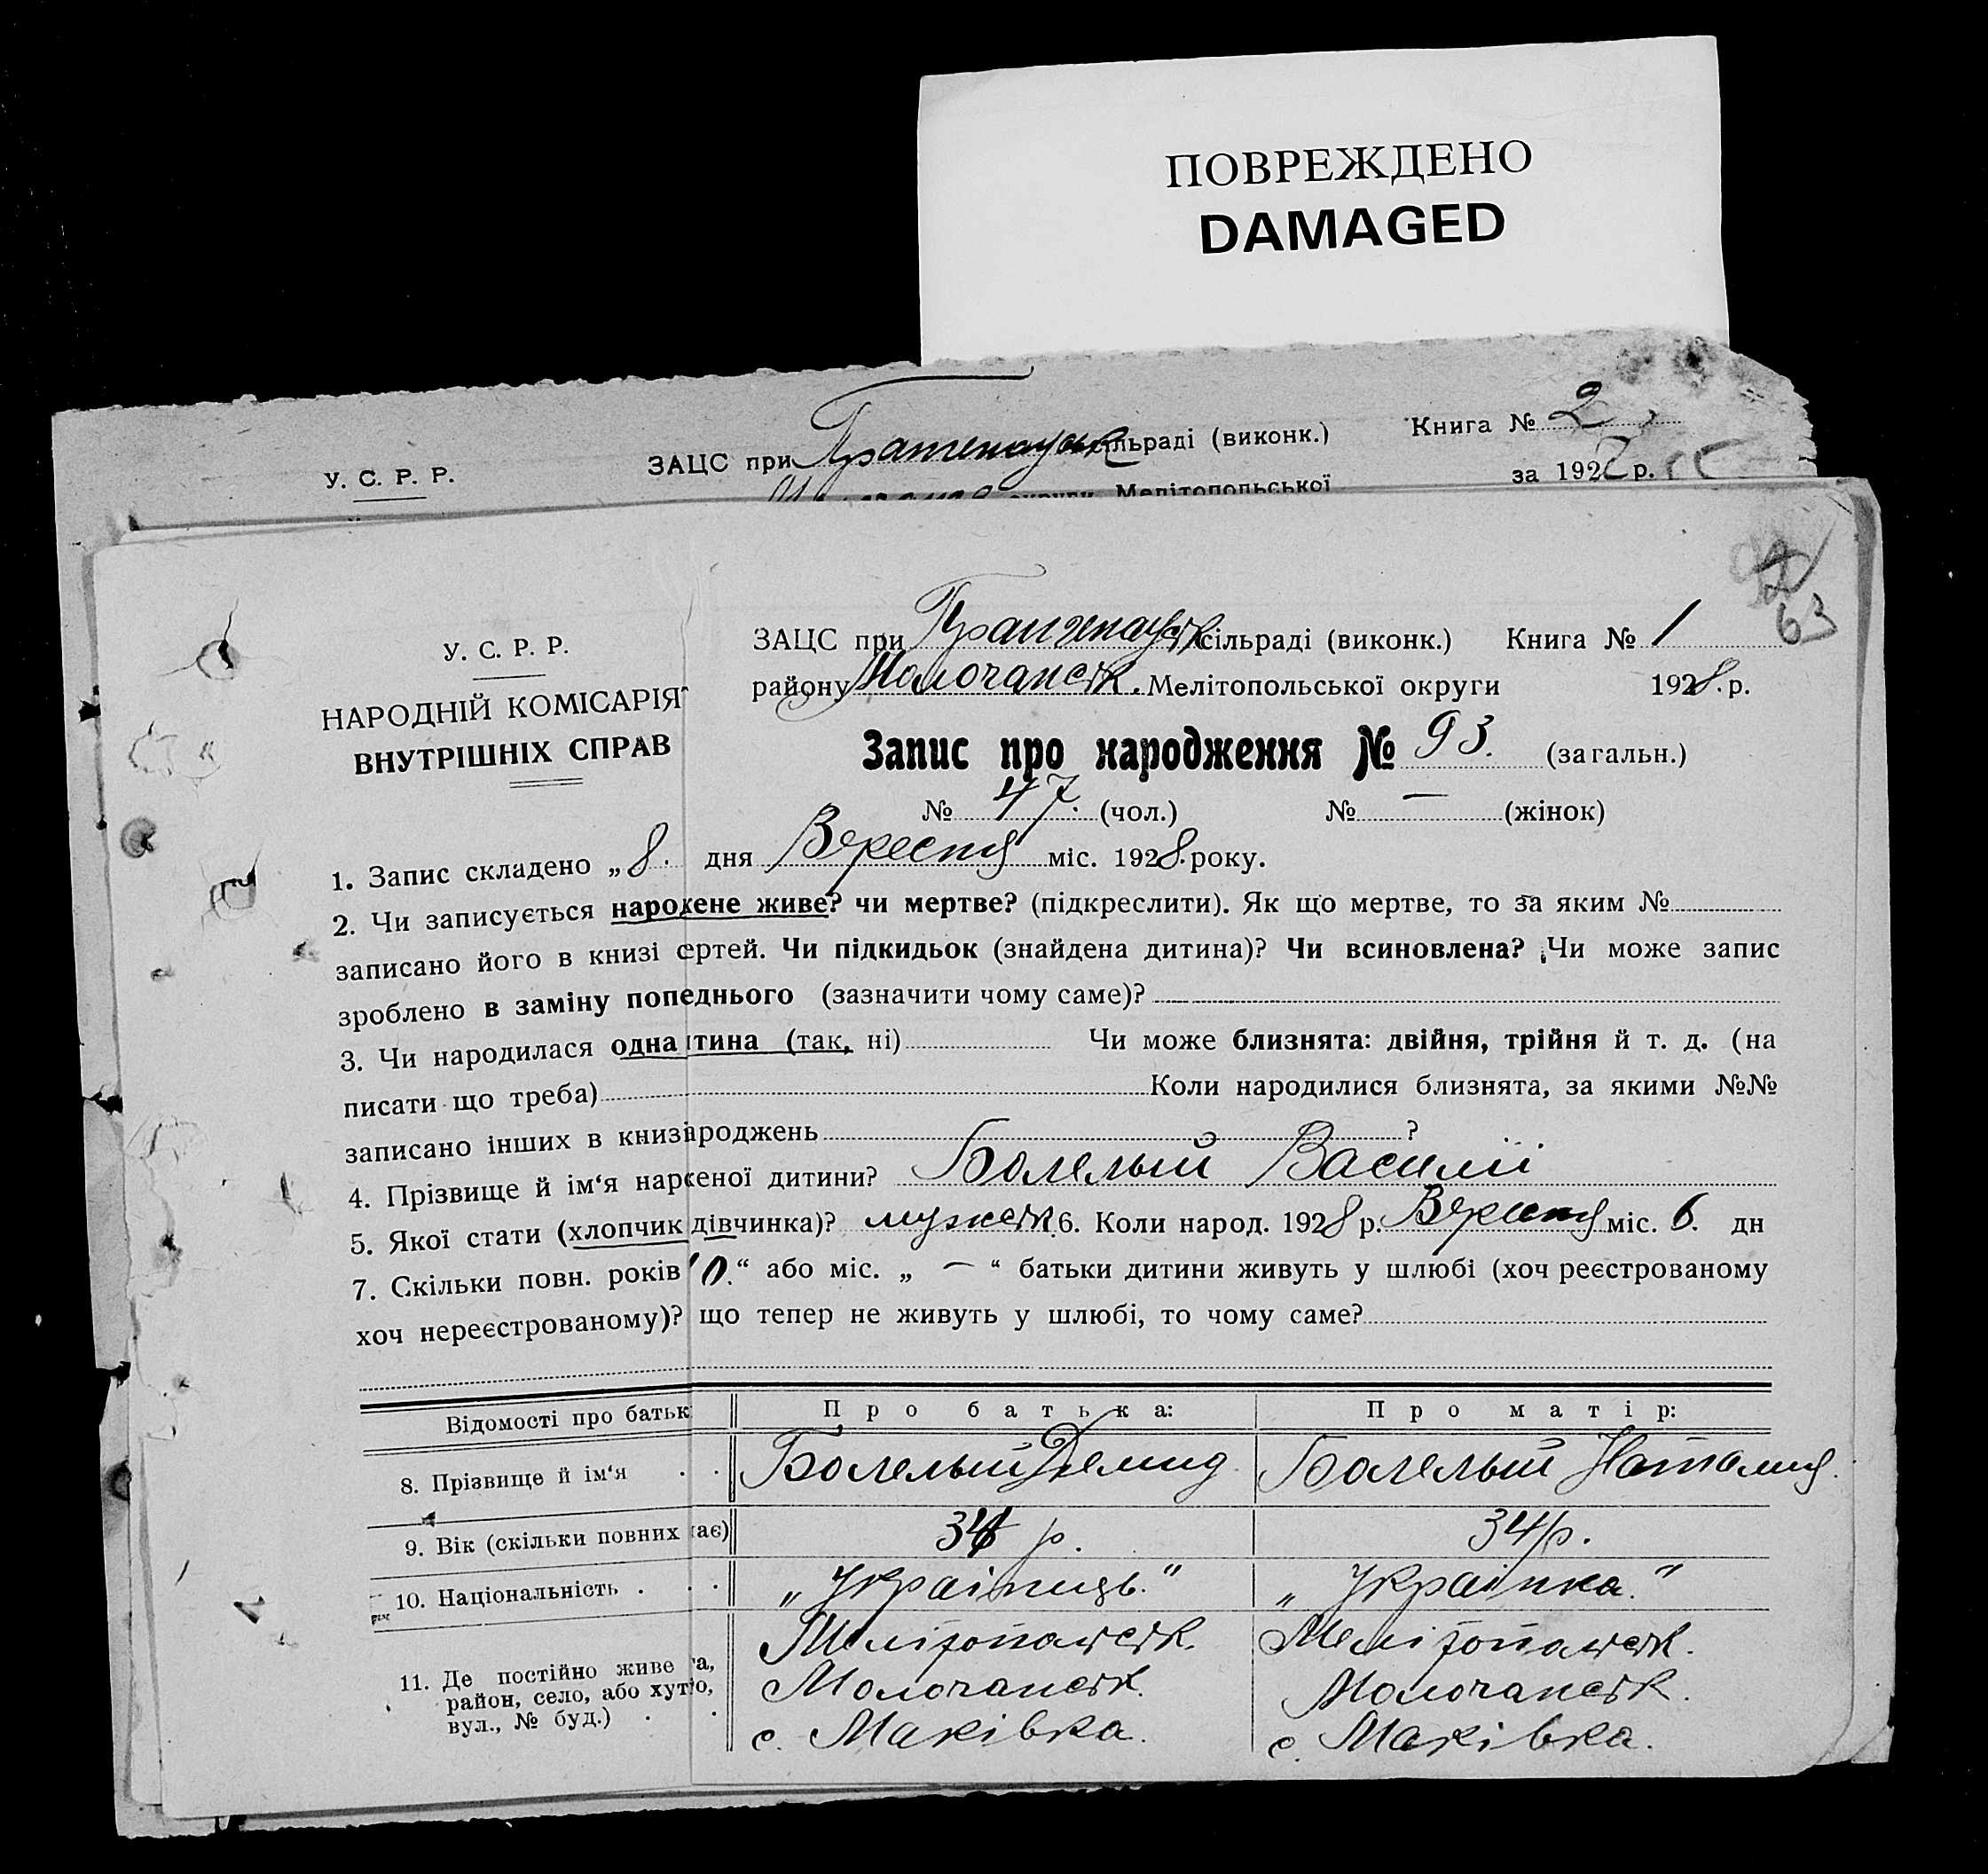 ПОВРЕЖДЕНО
DAMAGED
У. С. Р. Р. ЗАЦС при сільраді (виконк.) Книга № 2
округи Мелітопольської за 192 р.
63
У. С. Р. Р.
НАРОДНІЙ КОМІСАРІЯТ
ВНУТРІШНІХ СПРАВ
ЗАЦС при сільраді (виконк.) Книга № 1
району Молочанськ. Мелітопольської округи 1928. р.
Запис про народження № 93. (загальн.)
№ 47. (чол.) № — (жінок)
1. Запис складено „8. дня Вересня міс. 1928. року.
2. Чи записується народжене живе? чи мертве? (підкреслити). Як що мертве, то за яким №
записано його в книзі ертей. Чи підкидьок (знайдена дитина)? Чи всиновлена? Чи може запис
зроблено в заміну попеднього (зазначити чому саме)?
3. Чи народилася одна тина (так, ні) Чи може близнята: двійня, трійня й т. д. (на
писати що треба) Коли народилися близнята, за якими №№
записано інших в книзі ароджень ?
4. Прізвище й ім‘я нар еної дитини? Болелый Василій
5. Якої стати (хлопчик дівчинка)? мужськ. 6. Коли народ. 1928 р. Вересня міс. 6. дн
7. Скільки повн. років 10.“ або міс. „ — “ батьки дитини живуть у шлюбі (хоч реєстрованому
хоч нереєстрованому)? що тепер не живуть у шлюбі, то чому саме?
Відомості про батьк Про батька: Про матір:
8. Прізвище й ім‘я . . Болелый Демид Болелый Наталия.
9. Вік (скільки повних ає) р. 34 р.
10. Національність . . . „Украінець.“ „Украінка.“
11. Де постійно живе та, Мелітопольськ. Мелітопольськ.
район, село, або хуто, Молочанськ. Молочанськ.
вул., № буд.) . . с. Маківка. с. Маківка.